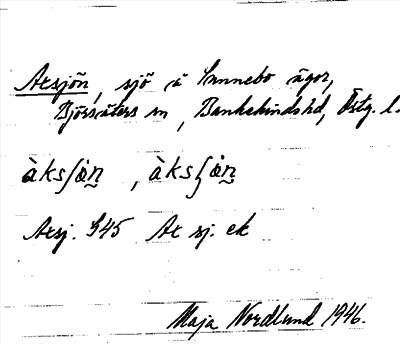 Axsjön, sjö å Sunnebo ägor,
Björsäters sn, Bankekinds hd, Östg. l.
àksʃön, àksʃön
Axsj. 345 Ax sj. ek
Maja Nordlund 1946.